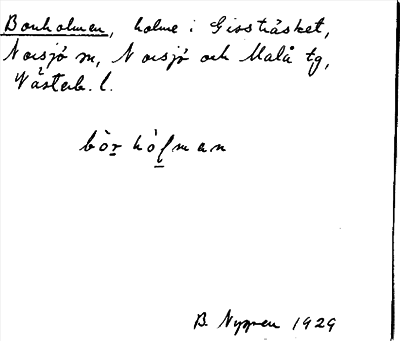 Bonholmen, holme i Gissträsket,
Norsjö sn, Norsjö och Malå tg,
Västerb. l.
bòr hòlman
B. Nygren 1929